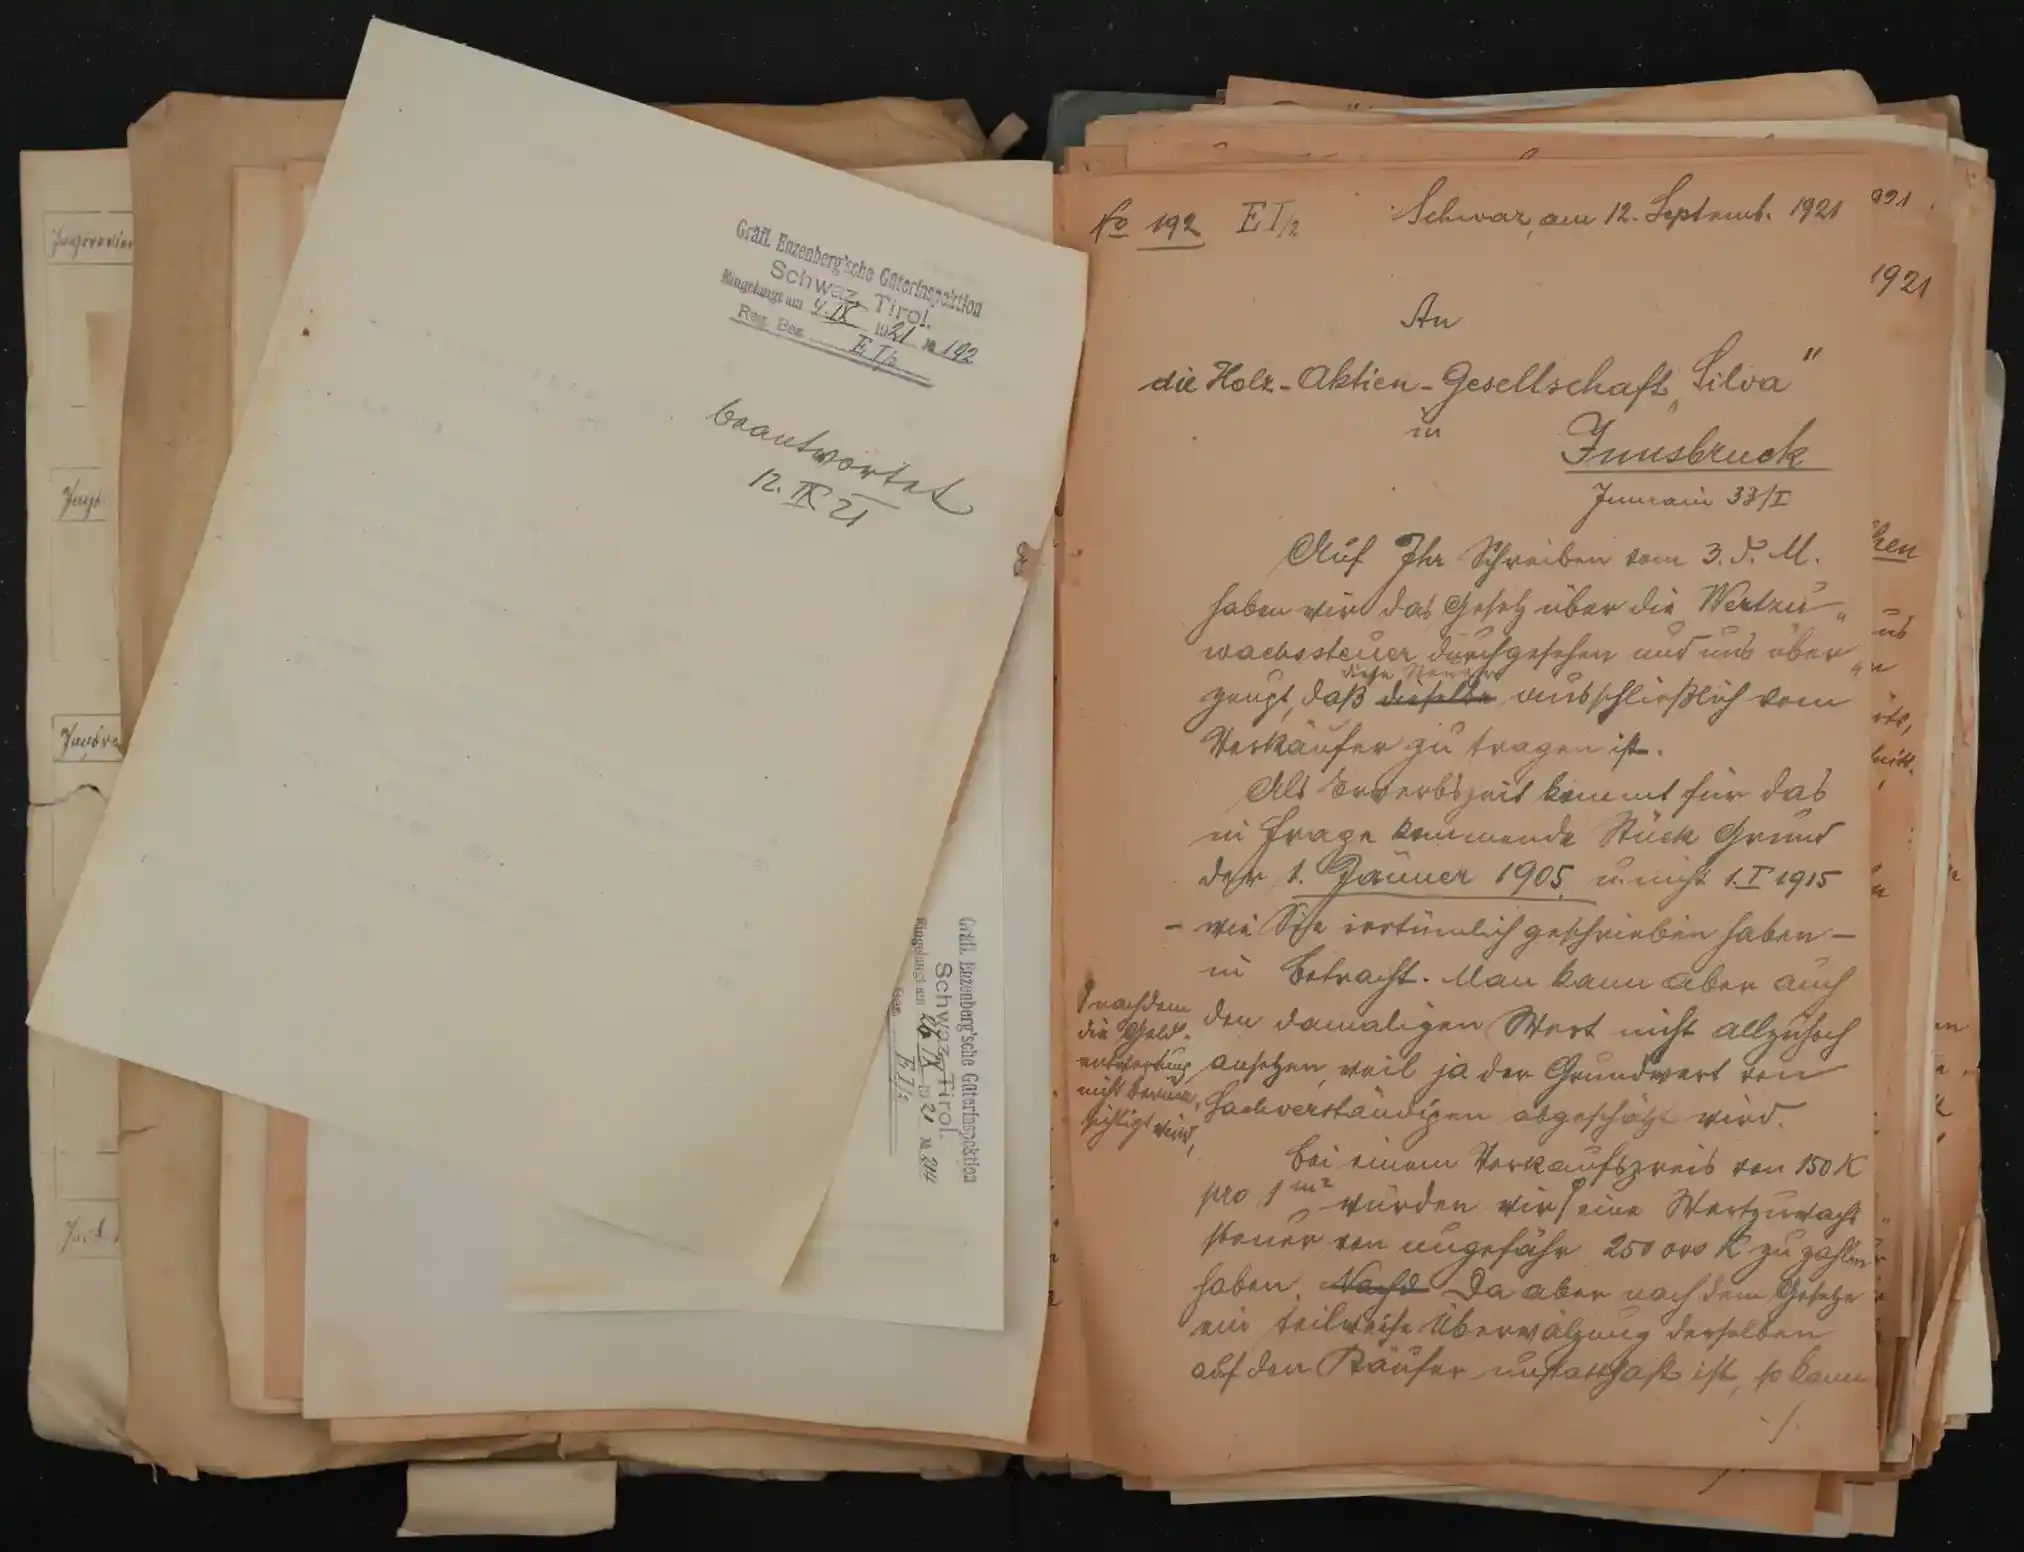 Gräfl. Enzenberg'sche Güterinspektion
Schwaz, Tirol.
Eingelangt am 4. IX 1921 № 192
Reg. Bez. E I/2
beantwortet
12. IX 21
Gräfl. Enzenberg'sche Güterinspektion
Schwaz, Tirol.
Eingelangt am 26 IX 1921 № 214
Bez. E I/2
No 192 E I/2 Schwaz, am 12. Septemb. 1921
1921
An
die Holz-Aktien-Gesellschaft „Silva"
in
Innsbruck
Innrain 33/I
Auf Ihr Schreiben vom 3. d. M.
haben wir das Gesetz über die Wertzu„
wachssteuer durchgesehen und uns über„
diese Steuer
zeugt, daß dieselbe ausschließlich vom
Verkäufer zu tragen ist.
Als Erwerbszeit kommt für das
in Frage kommende Stück Grund
der 1. Jänner 1905 u. nicht 1. I 1915
– wie Sie irrtümlich geschrieben haben –
in Betracht. Man kann aber auch
den damaligen Wert nicht allzuhoch
ansetzen, weil ja der Grundwert von
Sachverständigen abgeschätzt wird.
Bei einem Verkaufspreis von 150 K
pro 1 m² würden wir eine Wertzuwachs
steuer von ungefähr 250 000 K zu zahlen
haben. Nachd Da aber nach dem Gesetze
ein teilweise Überwälzung derselben
auf den Käufer unstatthaft ist, so kann
./.
nachdem
die Geld„
entwertung
nicht berück„
sichtigt wird,